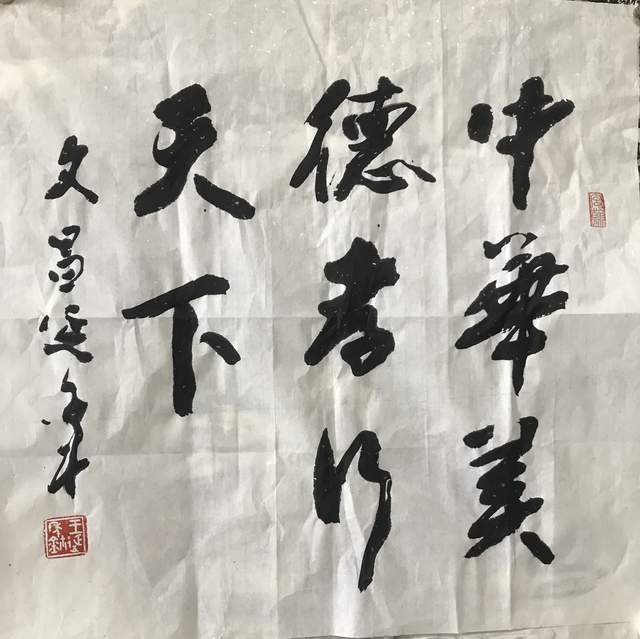 中華美
德孝行
天下
文昌